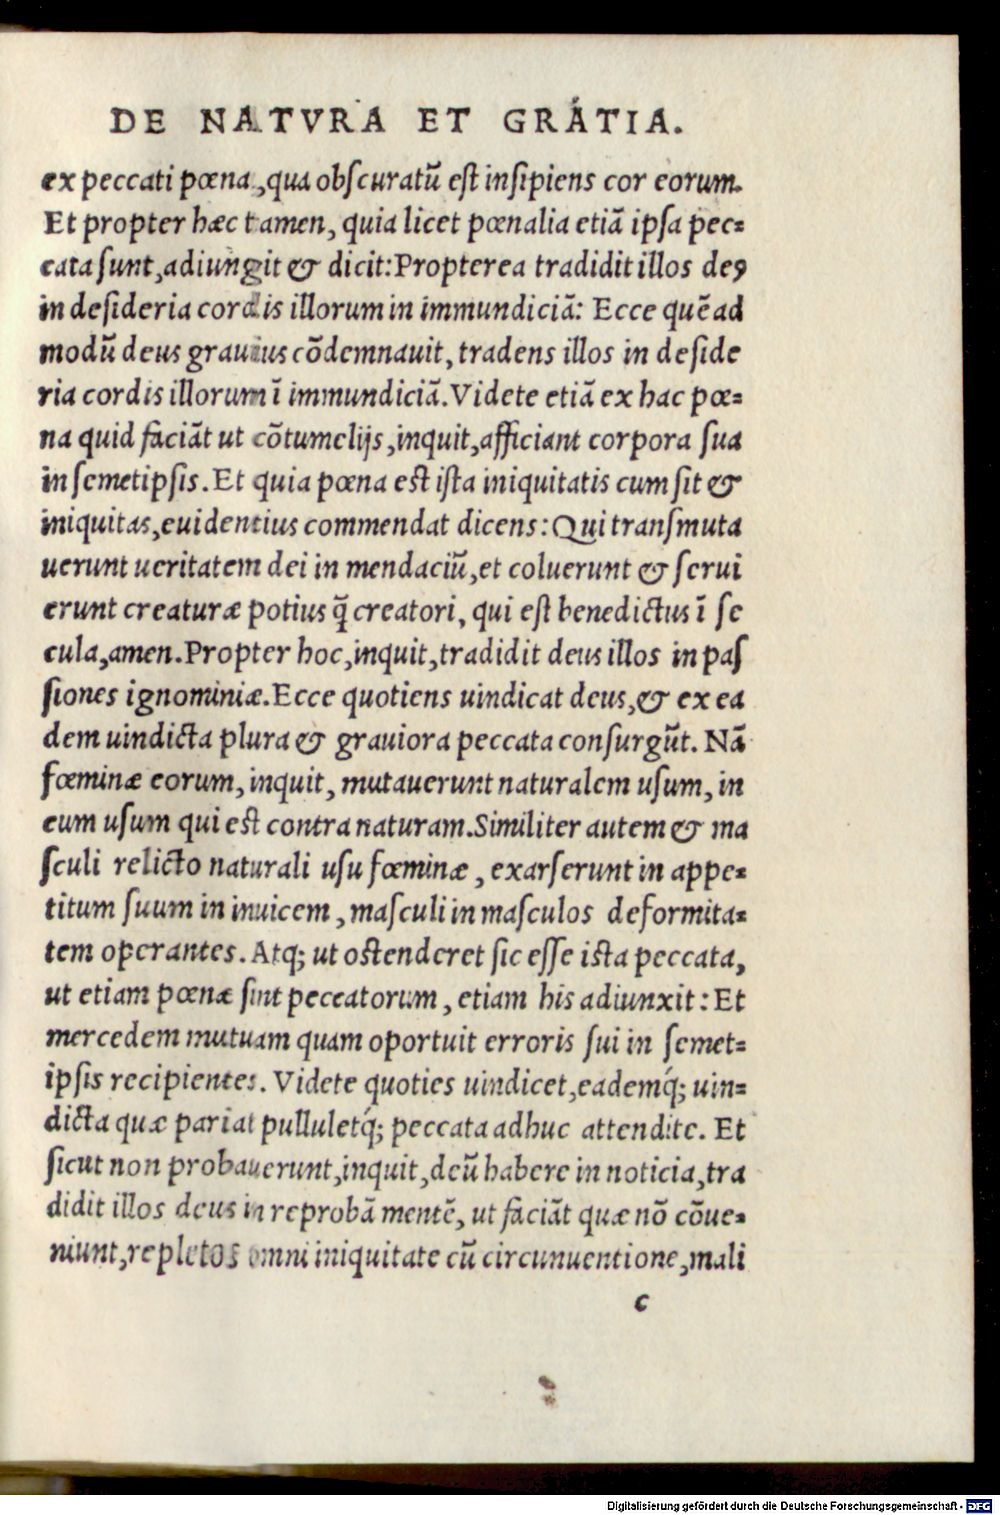 DE NATVRA ET GRATIA.
ex peccati pœna, qua obſcuratũ eſt inſipiens cor eorum.
Et propter hæc tamen, quia licet pœnalia etiã ipſa pec=
cata ſunt, adiungit & dicit: Propterea tradidit illos deꝰ
in deſideria cordis illorum in immundiciã: Ecce quẽad
modũ deus grauius cõdemnauit, tradens illos in deſide
ria cordis illorum ĩ immundiciã. Videte etiã ex hac pœ=
na quid faciãt ut cõtumelijs, inquit, afficiant corpora ſua
in ſemetipſis. Et quia pœna eſt iſta iniquitatis cum ſit &
iniquitas, euidentius commendat dicens: Qui tranſmuta
uerunt ueritatem dei in mendaciũ, et coluerunt & ſerui
erunt creaturæ potius q̃ creatori, qui eſt benedictus ĩ ſe
cula, amen. Propter hoc, inquit, tradidit deus illos in paſ
ſiones ignominiæ. Ecce quotiens uindicat deus, & ex ea
dem uindicta plura & grauiora peccata conſurgũt. Nã
fœminæ eorum, inquit, mutauerunt naturalem uſum, in
eum uſum qui eſt contra naturam. Similiter autem & ma
ſculi relicto naturali uſu fœminæ, exarſerunt in appe=
titum ſuum in inuicem, maſculi in maſculos deformita=
tem operantes. Atq; ut oſtenderet ſic eſſe iſta peccata,
ut etiam pœnæ ſint peccatorum, etiam his adiunxit: Et
mercedem mutuam quam oportuit erroris ſui in ſemet=
ipſis recipientes. Videte quoties uindicet, eademq́; uin=
dicta quæ pariat pulluletq́; peccata adhuc attendite. Et
ſicut non probauerunt, inquit, deũ habere in noticia, tra
didit illos deus in reprobã mentẽ, ut faciãt quæ nõ cõue=
niunt, repletos omni iniquitate cũ circunuentione, mali
c
Digitalisierung gefördert durch die Deutsche Forschungsgemeinschaft - DFG